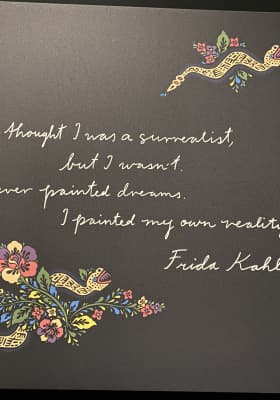 thought I was a surrealist,
but I wasn't.
painted dreams.
I painted my own reality
Frida